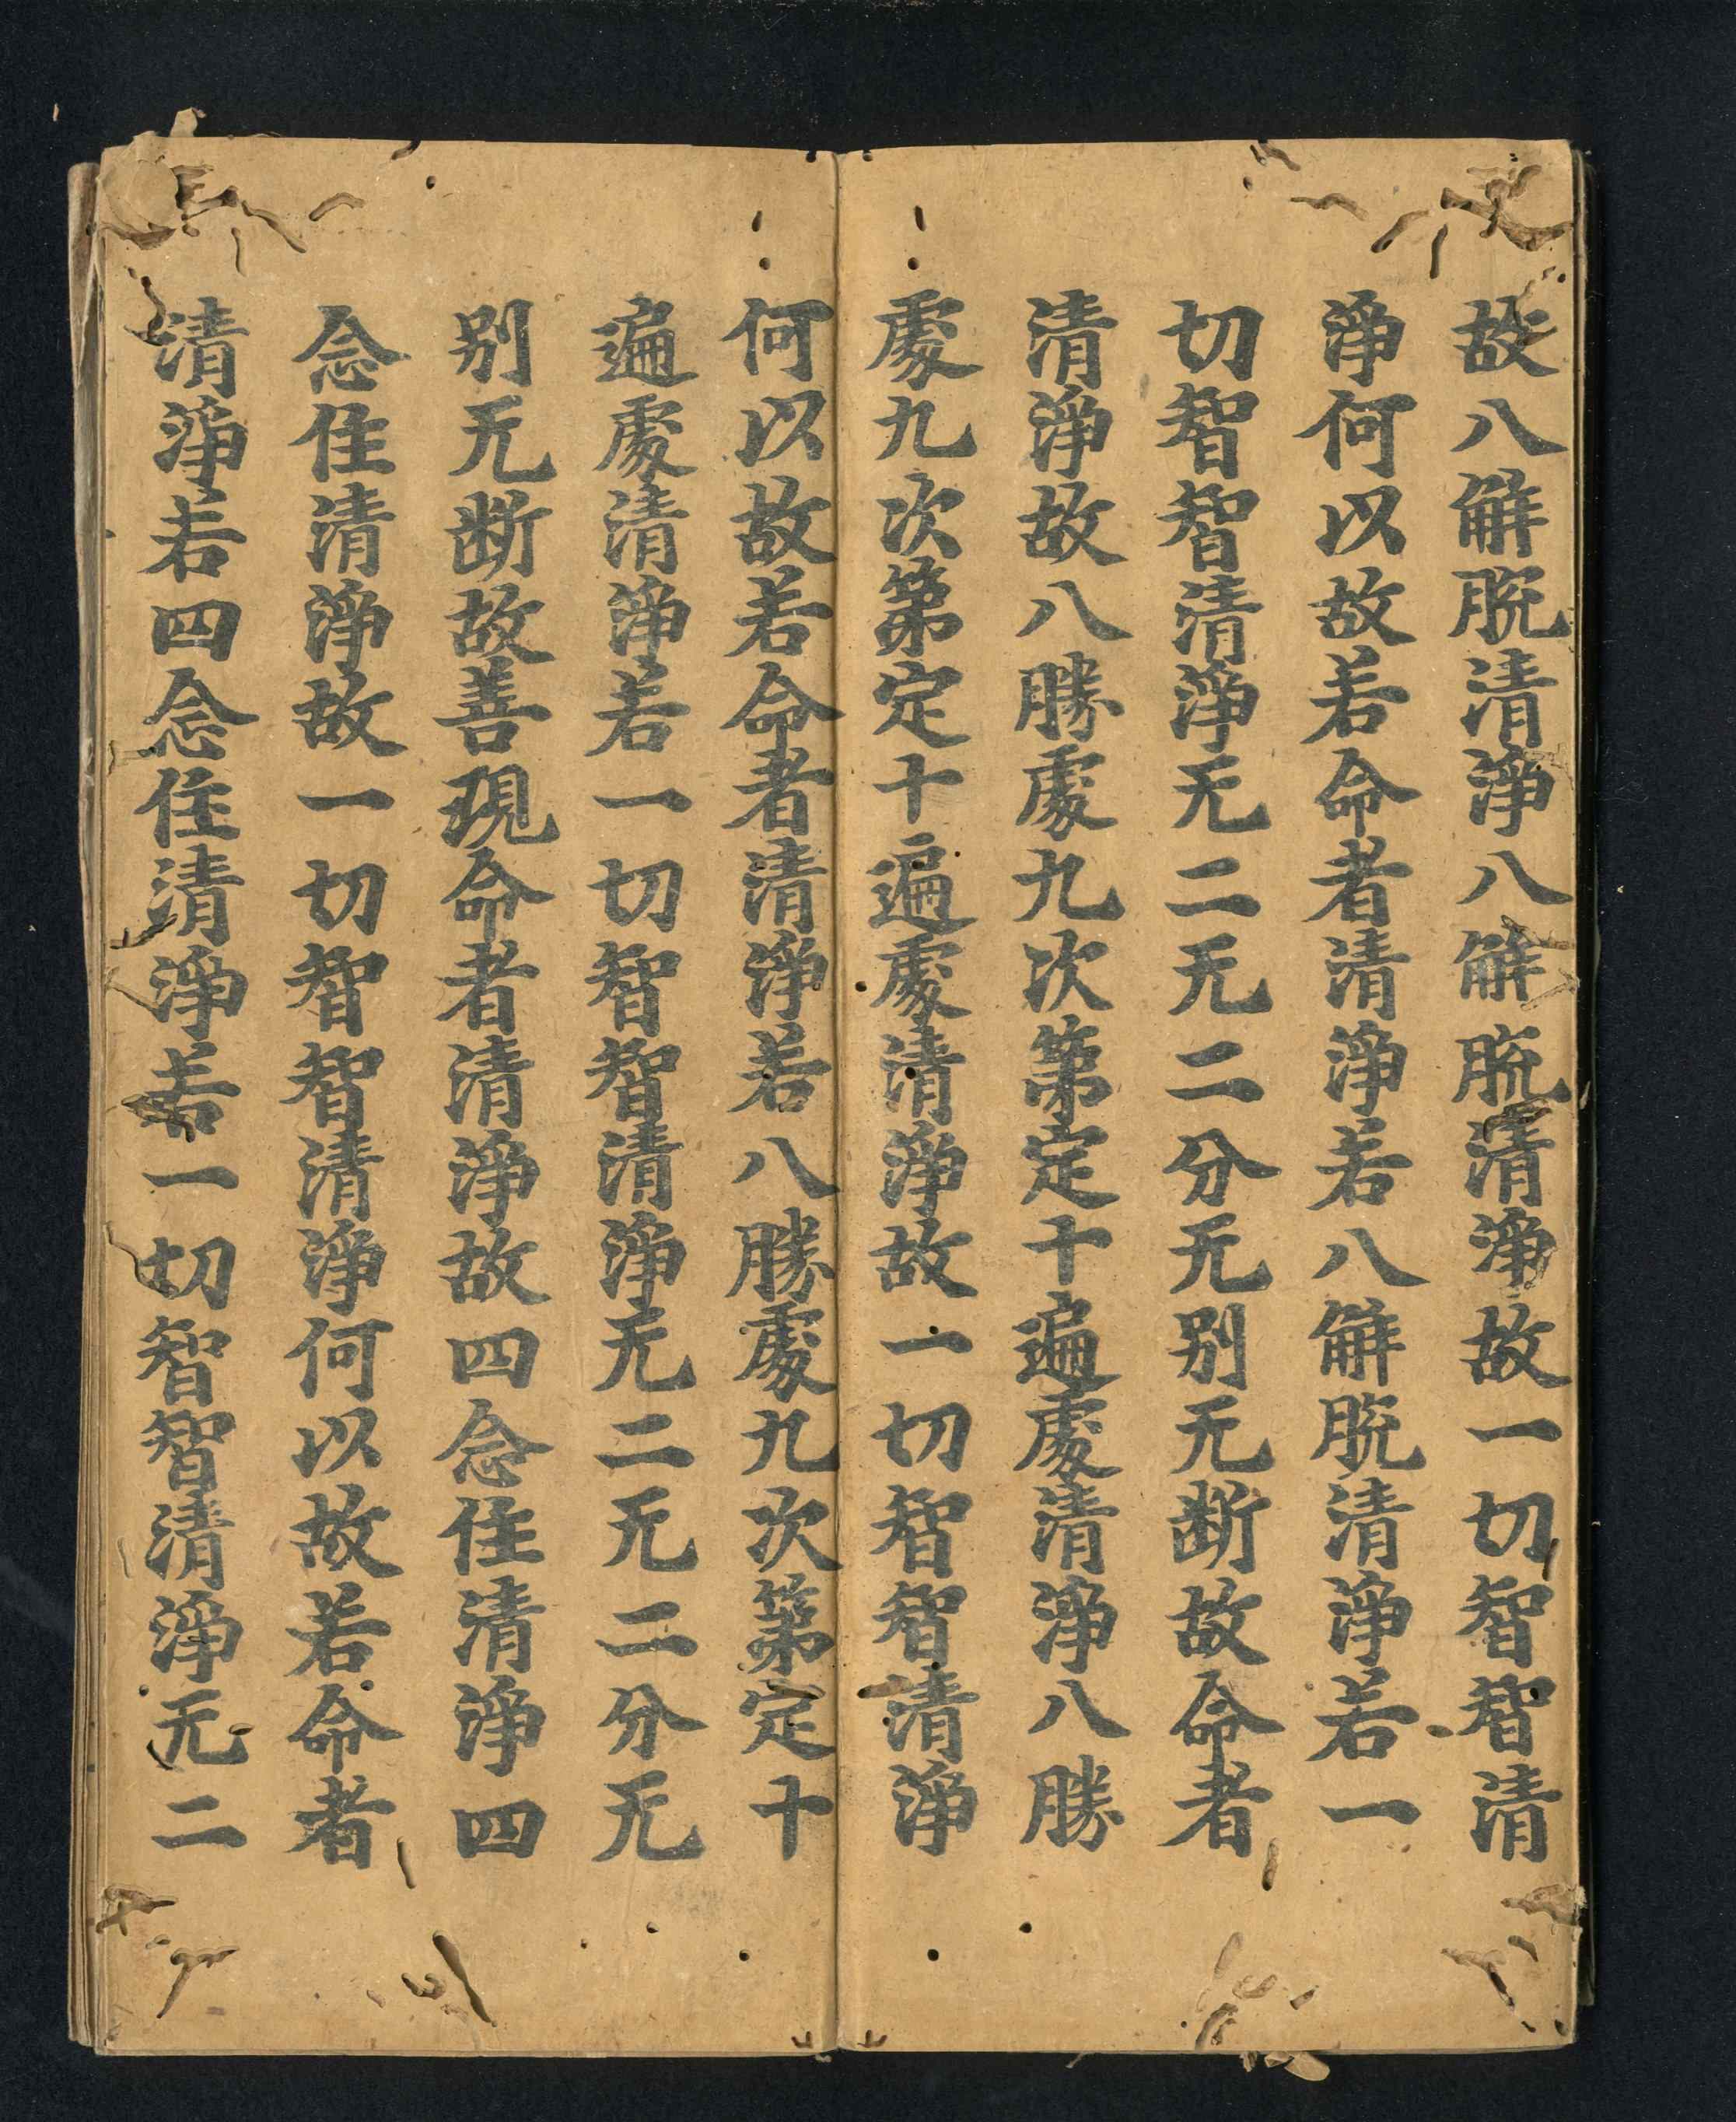 故八解脫清淨八解脫清淨故一切智智清
淨何以故若命者清淨若八解脫清淨若一
切智智清淨无二无二分无别无断故命者
清淨故八勝處九次第定十遍處清淨八勝
處九次第定十遍處清淨故一切智智清淨
何以故若命者清淨若八勝處九次第定十
遍處清淨若一切智智清淨无二无二分无
别无断故善現命者清淨故四念住清淨四
念住清淨故一切智智清淨何以故若命者
清淨若四念住清淨若一切智智清淨无二